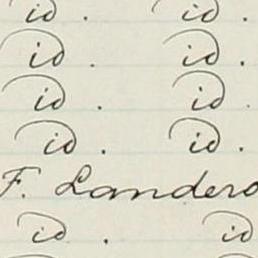 id. id.
id. id.
id. id.
id. id.
F. Landero
id. id